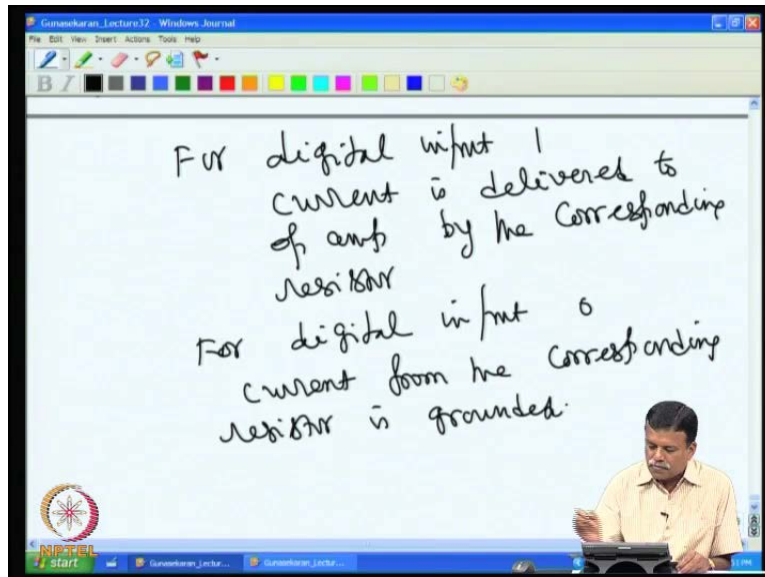 Gunasekaran_Lecture32 - Windows Journal
File Edit View Insert Actions Tools Help
B I
For digital input 1
current is delivered to
op amp by the corresponding
resistor
For digital input 0
current from the corresponding
resistor is grounded.
NPTEL
start Gunasekaran_Lectur... Gunasekaran_Lectur...